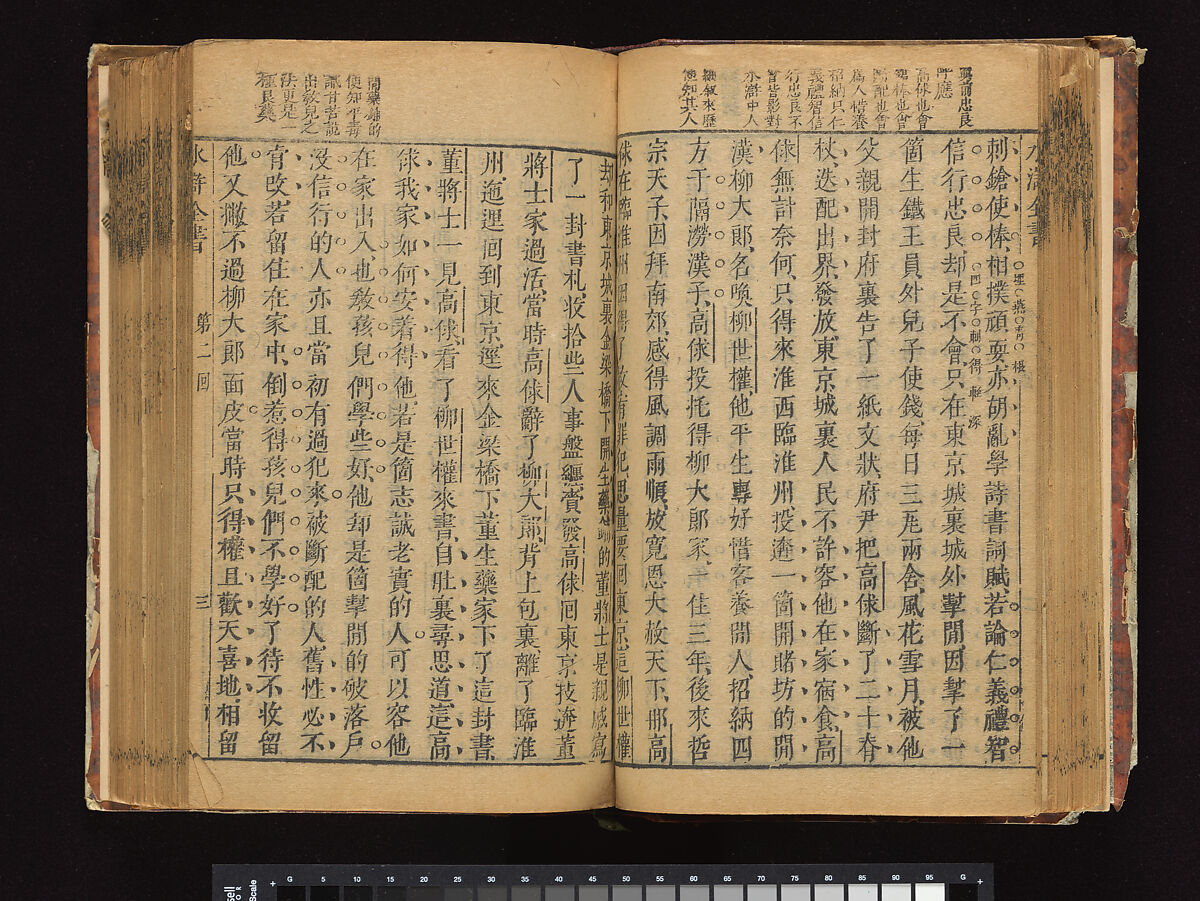 水滸全書
高俅也會
爲人惜養
招納只仁
義禮智信
行忠良不
會皆影對
水滸中人
細叙來歷
便知其人
刺鎗使棒、相撲頑耍、亦胡亂學詩書詞賦、若論仁義禮智
埋燕青根
信行忠良、却是不會、只在東京城裏城外幫閒、因幫了一
箇生鐵王員外兒子使錢、每日三瓦兩舍、風花雪月、被他
父親開封府裏告了一紙文狀、府尹把高俅斷了二十脊
杖、迭配出界、發放、東京城裏人民不許容他在家宿食、高
俅無計奈何、只得來淮西臨淮州、投逩一箇開賭坊的閒
漢柳大郎、名喚柳世權、他平生專好惜客養閒人、招納四
方干隔澇漢子、高俅投托得柳大郎家、一住三年、後來哲
宗天子、因拜南郊、感得風調雨順、放寬恩大赦天下、那高
俅在臨淮州、因得了赦宥罪犯、思量要回東京、這柳世權
却和東京城裏金梁橋下開生藥鋪的董將士是親戚、寫
了一封書札、收拾些人事盤纏、賫發高俅囘東京、投逩董
將士家過活、當時高俅辭了柳大郎、背上包裹、離了臨淮
州、迤逦囘到東京、逕來金梁橋下董生藥家下了這封書、
董將士一見高俅、看了柳世權來書、自肚裏尋思道、這高
俅、我家如何安着得他、若是箇志誠老實的人、可以容他
在家出入、也敎孩兒們學些好、他却是箇幫閒的破落戶、
沒信行的人、亦且當初有過犯來、被斷配的人、舊性必不
肯改、若留住在家中、倒惹得孩兒們不學好了、待不收留
他、又撇不過柳大郎面皮、當時只得權且歡天喜地、相留
開藥鋪的
便知平毒
識甘苦說
出敎兒之
法更是一
種良藥
水滸全書
第二回
三